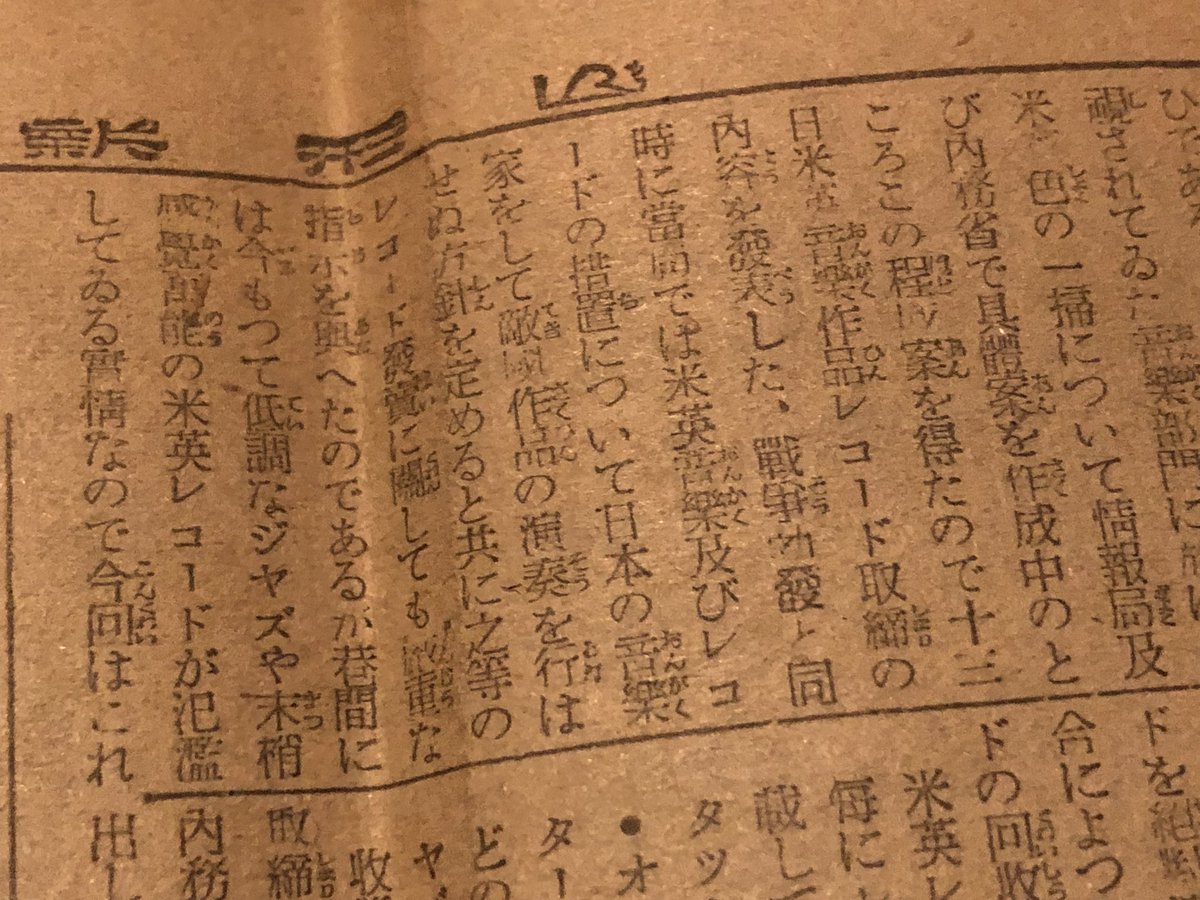 視されてゐた音樂部門に
米 色の一掃について情報局及
び內務省で具體案を作成中のと
ころこの程 案を得たので十三
日米英音樂作品レコード取締の
內容を發表した、戰爭勃發と同
時に當局では米英音樂及びレコ
ードの措置について日本の音樂
家をして敵國作品の演奏を行は
せぬ方針を定めると共に之等の
レコード發賣に關しても嚴重な
指示を與へたのであるが巷間に
は今もつて低調なジヤズや末梢
感覺 能の米英レコードが氾濫
してゐる實情なので今回はこれ
ドを絕對
合によつ
ドの回收
米英レ
每に
載して
タッ
●オ
ター
どの
ャ
收
取締
內務
出し